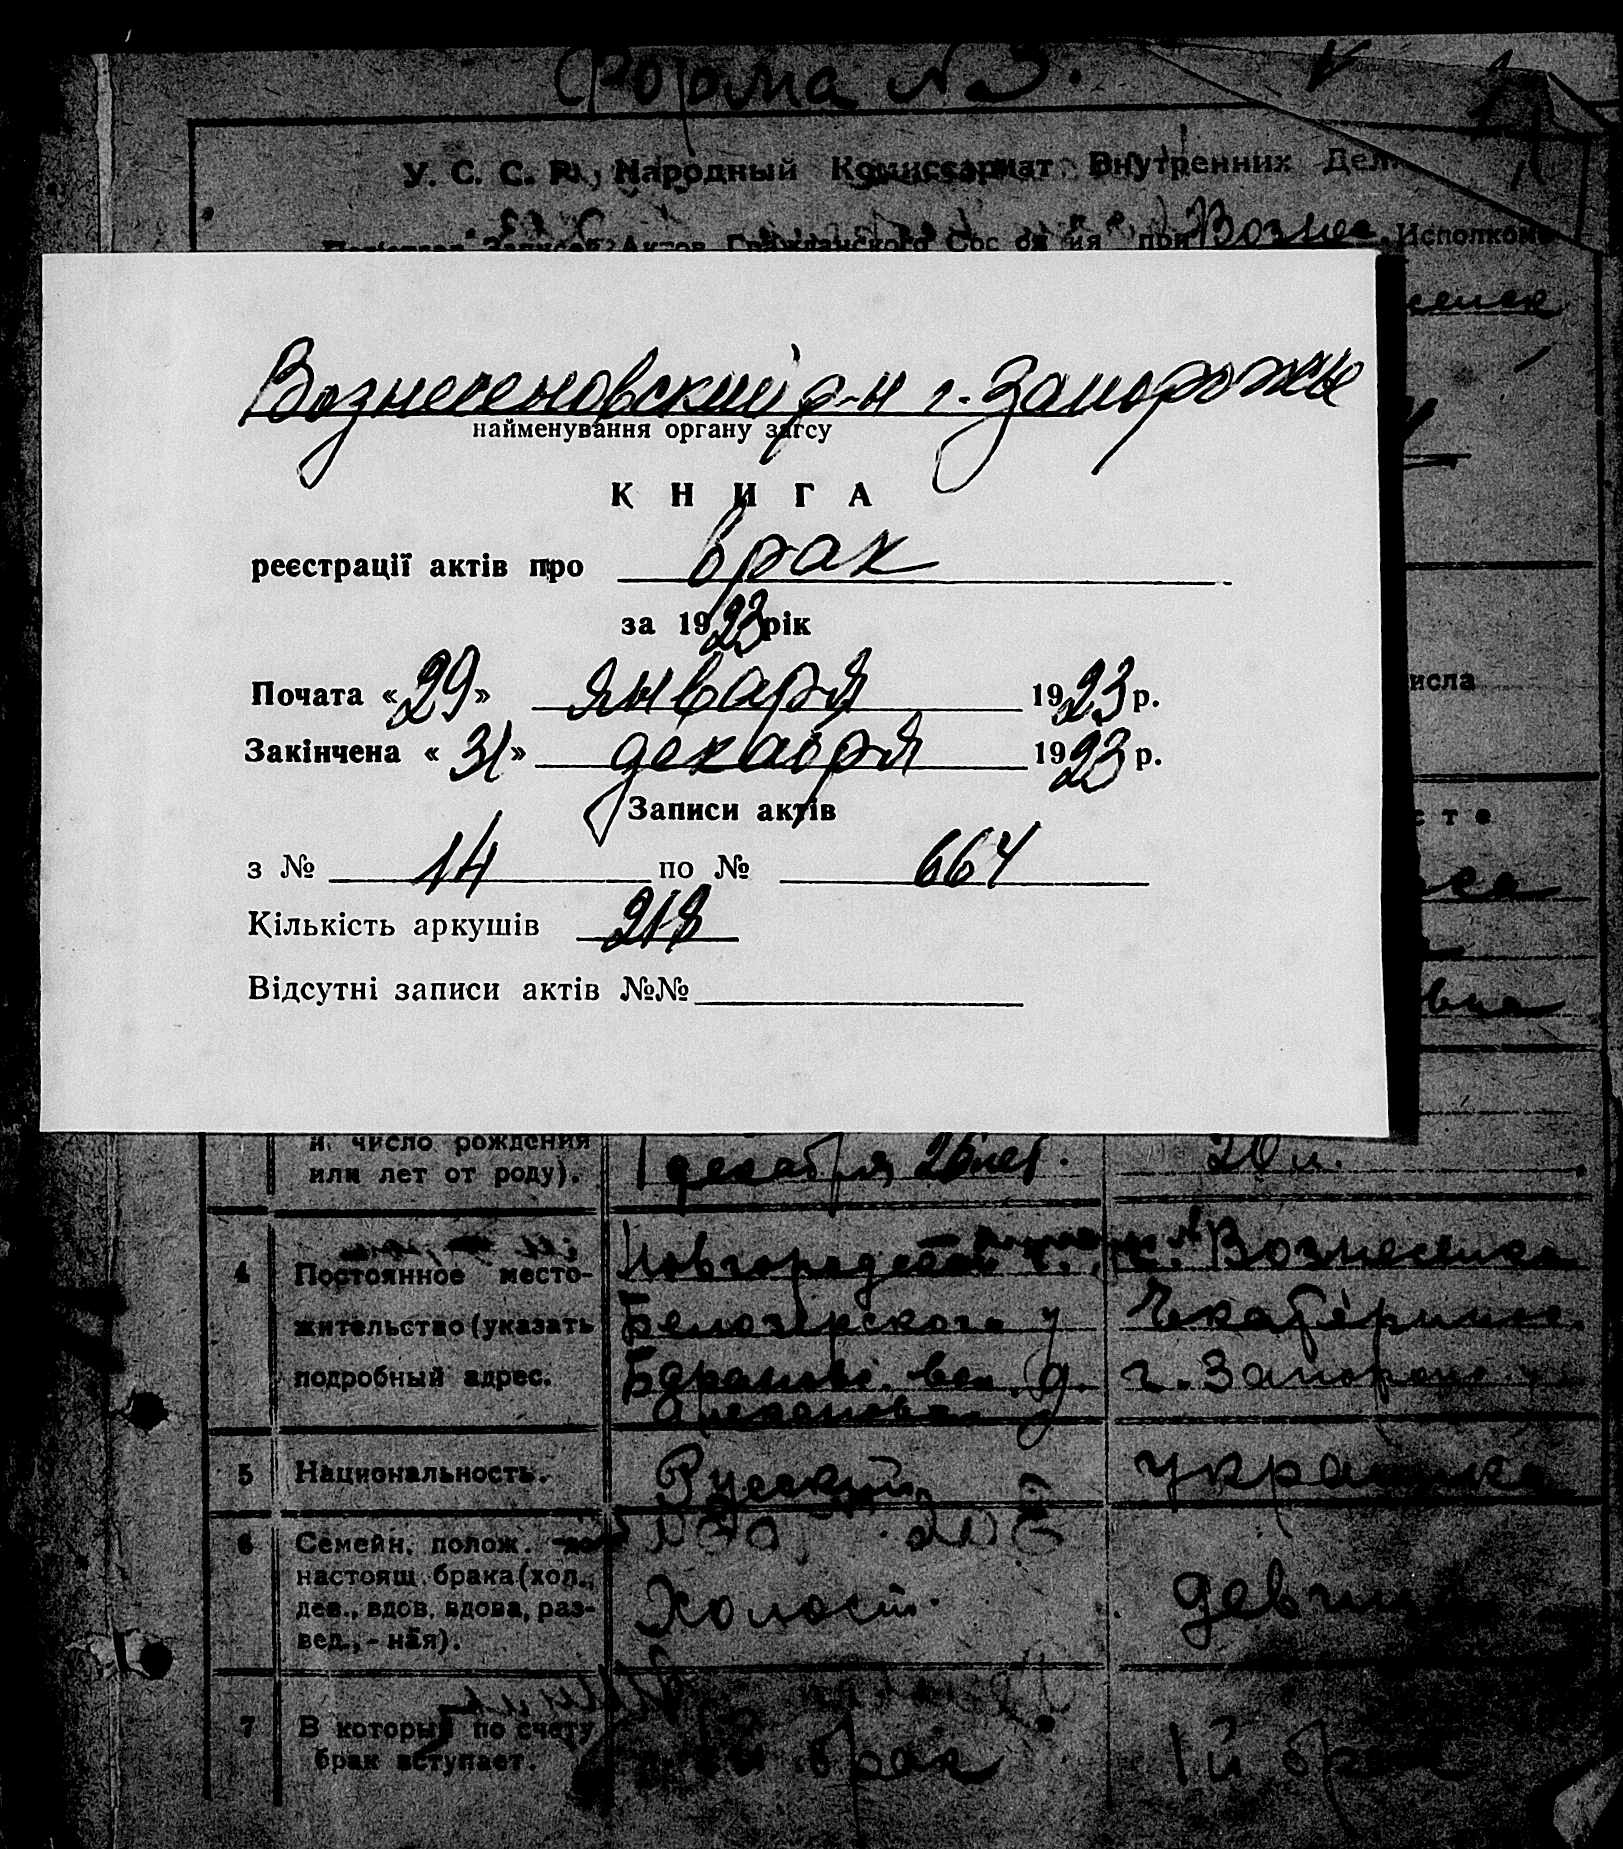 Форма №3.
У. С. С. Р. Народный Комиссариат Внутренних Дел.
Записей Актов Гражданского при Вознес. Исполкоме
Вознесеновский р-н г. Запорожье
найменування органу загсу
КНИГА
реєстрації актів про брак
за 1923 рік
Почата «29» января 1923 р.
Закінчена «31» декабря 1923 р.
исла
Записи актів
сте
з № 14 по № 664
Кількість аркушів 218
Відсутні записи актів №№
вна
и число рождения
или лет от роду). 1 декабря 26 лет. 20 л.
4 Постоянное место- Новгородской г. с. Вознесенка
жительство (указать Белозерского у
подробный адрес. вол. д. г. Запорож
5 Национальность. Русский украинка
6 Семейн. полож. до
настоящ. брака (хол., Холост девица
дев., вдов, вдова, раз-
вед., - ная).
7 В который по счету брак 1й брак
брак вступает.